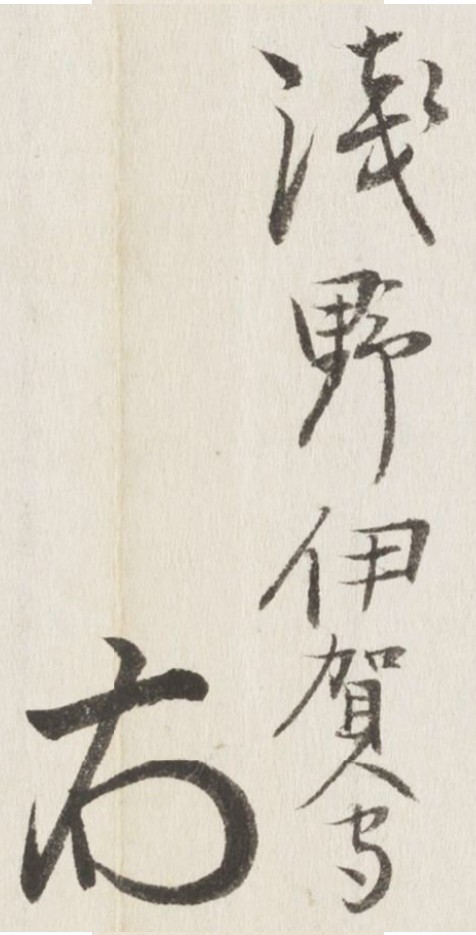 浅野伊賀守